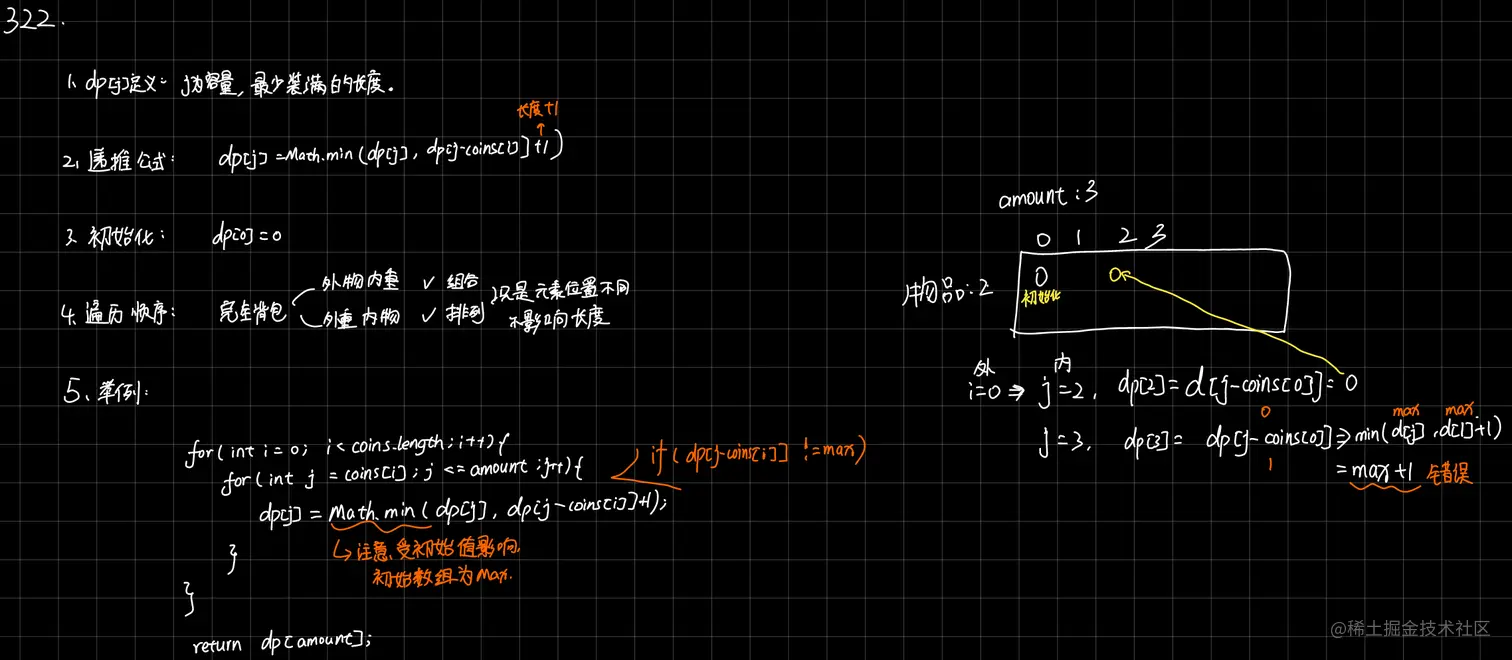 322.
1、dp[j]定义: j为容量, 最少装满的长度。
长度+1
2、递推公式: dp[j] = Math.min(dp[j], dp[j-coins[i]]+1)
3、初始化: dp[0]=0
4、遍历顺序: 完全背包
外物内重 ✓ 组合
外重内物 ✓ 排列
只是元素位置不同
不影响长度
5、举例:
for(int i=0; i<coins.length; i++){
for(int j = coins[i]; j <= amount; j++){
if(dp[j-coins[i]] != max)
dp[j] = Math.min(dp[j], dp[j-coins[i]]+1);
注意、受初始值影响,
初始数组为max.
}
}
return dp[amount];
amount: 3
0 1 2 3
物品: 2
0 0
初始化
外 内
i=0 ⇒ j=2, dp[2]=d[j-coins[0]]=0
0 max max
j=3, dp[3]= dp[j-coins[0]]⇒min(d[j],d[1]+1)
1
=max+1 错误
@稀土掘金技术社区